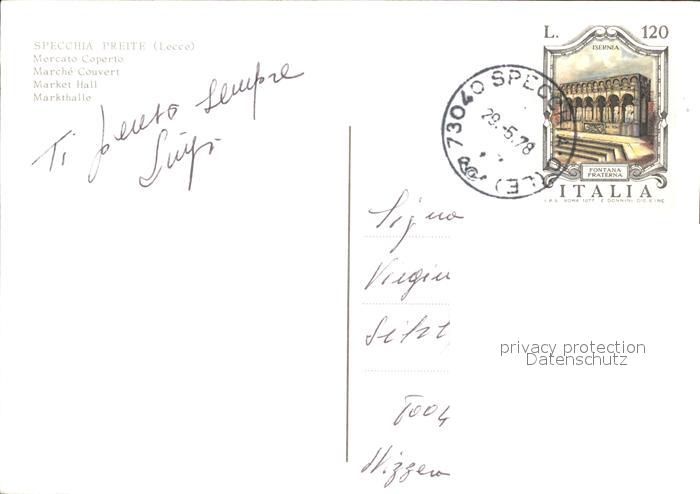 SPECCHIA PREITE (Lecce)
Mercato Coperto
Marché Couvert
Market Hall
Markthalle
Ti penso sempre
Luigi
L. 120
ISERNIA
FONTANA
FRATERNA
ITALIA
I.P.S. ROMA 1977 E. DONNINI DIS. E INC.
73040 SPECCHIA (LE)
29.-5.78
Signo
Virgin
privacy protection
Datenschutz